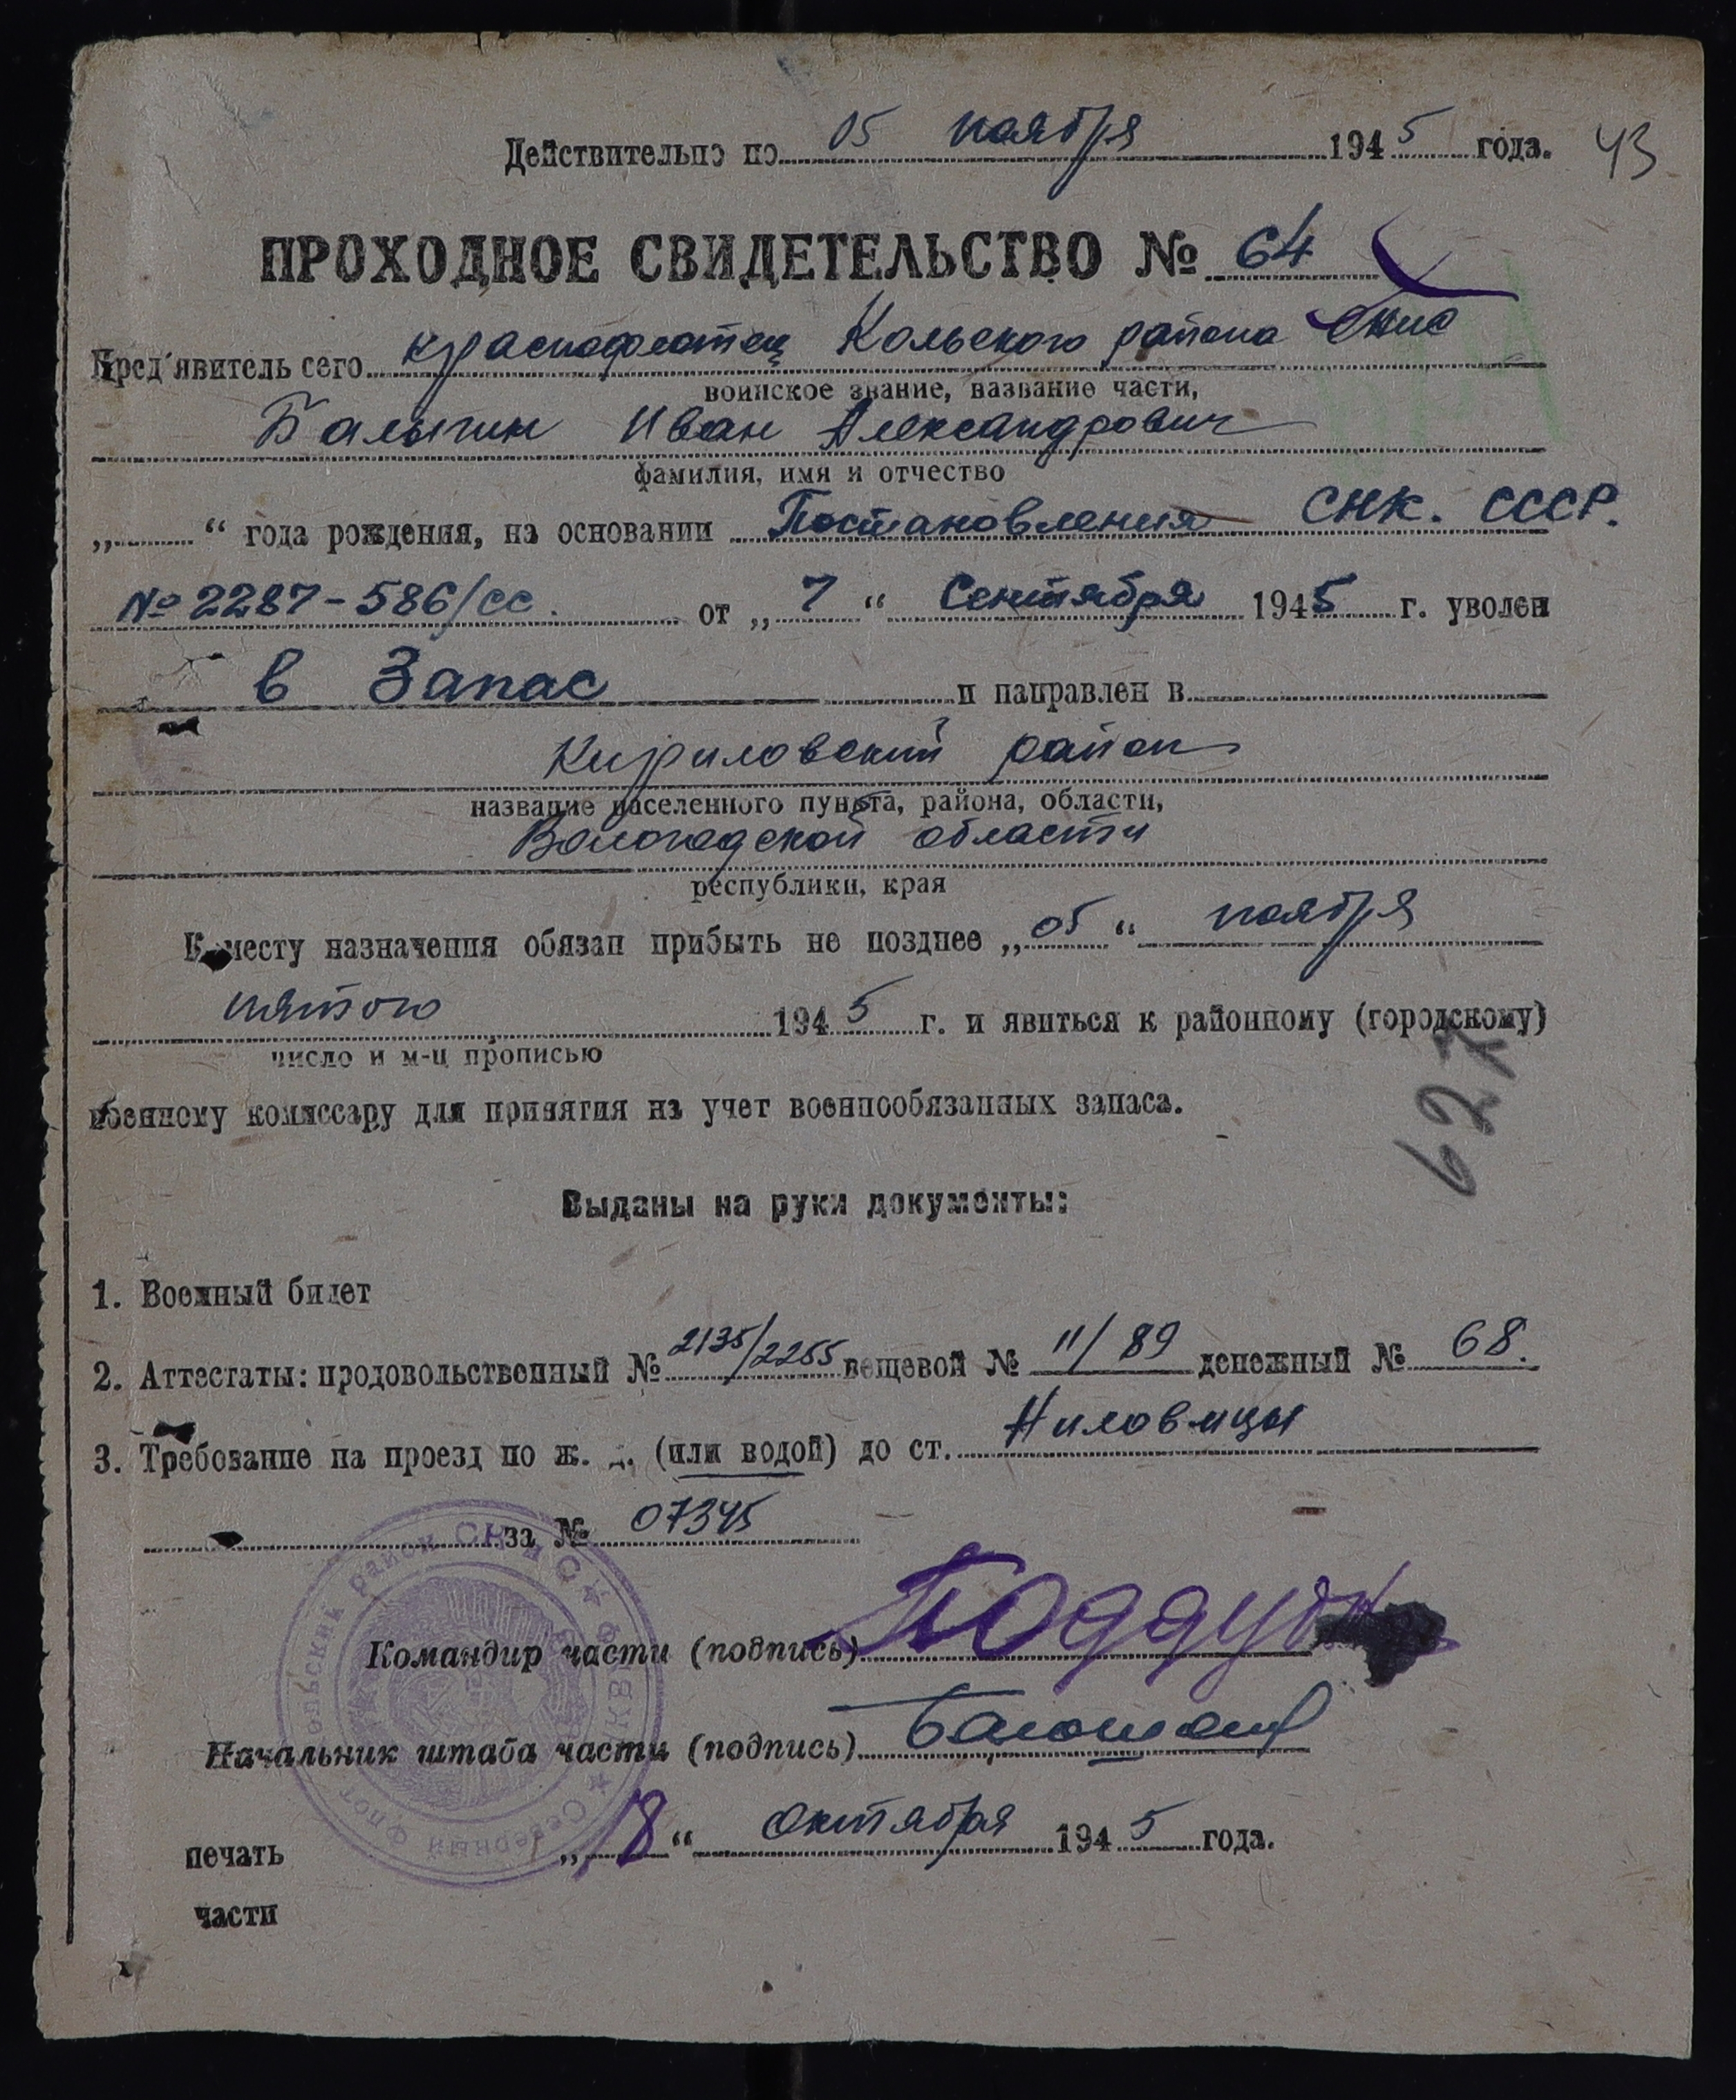 Действительно по 05 ноября 1945 года. 43
ПРОХОДНОЕ СВИДЕТЕЛЬСТВО № 64
Пред'явитель сего краснофлотец Кольского района СНиС
воинское звание, название части,
Балыгин Иван Александрович
фамилия, имя и отчество
„ “ года рождения, на основании Постановления СНК. СССР.
№ 2287-586/сс. от „ 7 “ Сентября 1945 г. уволен
в Запас и направлен в
Кириловский район
название населенного пункта, района, области,
Вологодской области
республики, края
К месту назначения обязан прибыть не позднее „ 05 “ ноября
пятого 1945 г. и явиться к районному (городскому)
число и м-ц прописью
военному комиссару для принятия на учет военнообязанных запаса.
627
Выданы на руки документы:
1. Военный билет
2. Аттестаты: продовольственный № 2135/2255 вещевой № 11/89 денежный № 68.
3. Требование на проезд по ж. д. (или водой) до ст. Ниловицы
за № 07345
Командир части (подпись)
Начальник штаба части (подпись)
„ 18 “ октября 1945 года.
печать
части
Кольский район СНиС
Северный флот